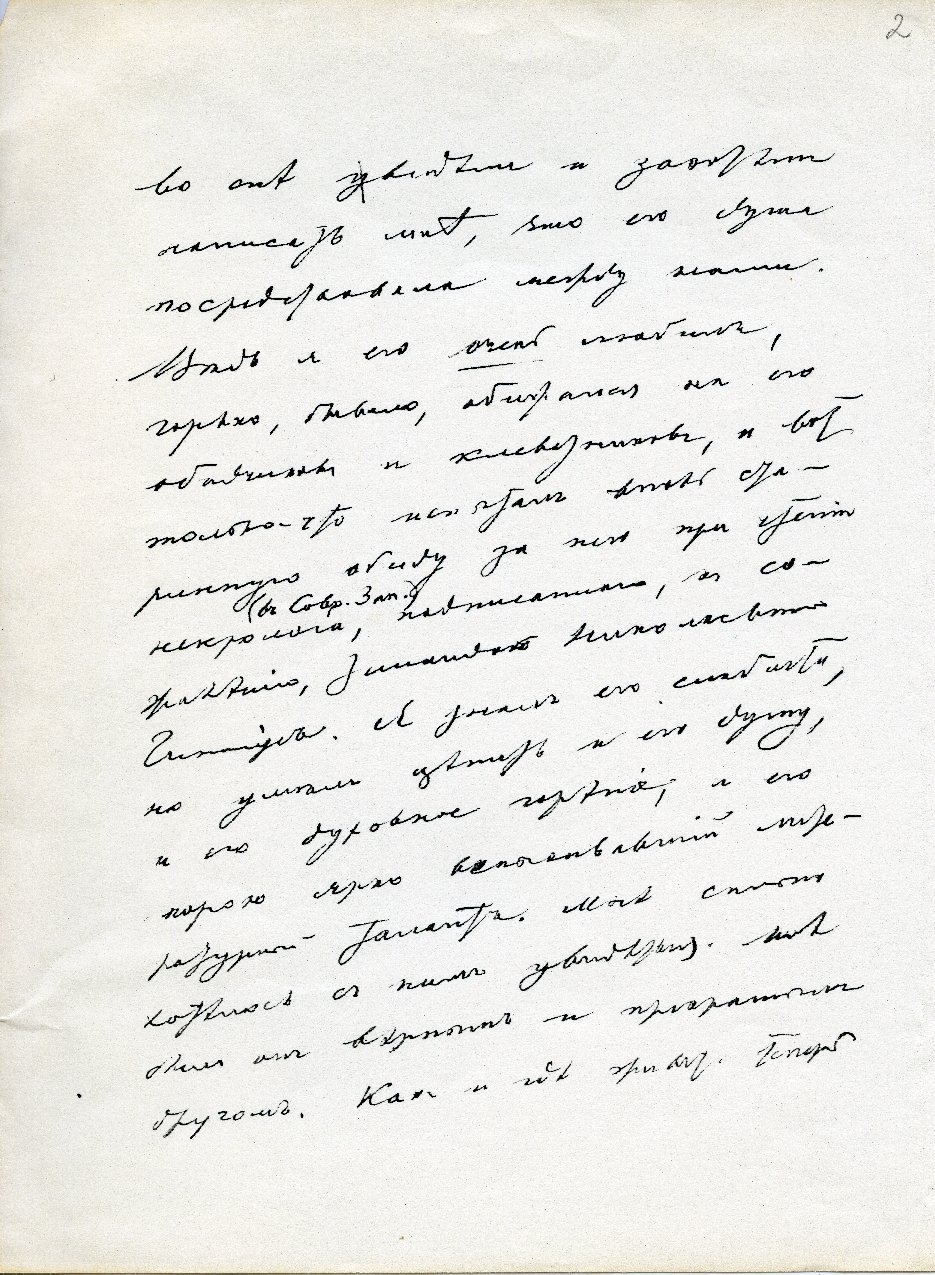 2
во снѣ увидѣли и захотѣли
написать мнѣ, что его душа
посредствовала между нами.
Вѣдь я его очень любилъ,
горько, бывало, обижался на его
обидчиковъ и клеветниковъ, и вотъ
только-что испыталъ вновь ста-
ринную обиду за него при чтеніи
(въ Совр. Зап.)
некролога, подписаннаго, къ со-
жалѣнію, Зинаидою Николаевною
Гиппіусъ. Я зналъ его слабости,
но умѣлъ цѣнить и его душу,
и его духовное горѣніе, и его
порою ярко вспыхивавшій лите-
ратурный талантъ. Мнѣ сильно
хотѣлось съ нимъ увидѣться. Мнѣ
былъ онъ вѣрнымъ и прекраснымъ
другомъ. Какъ и гдѣ живу. Теперь